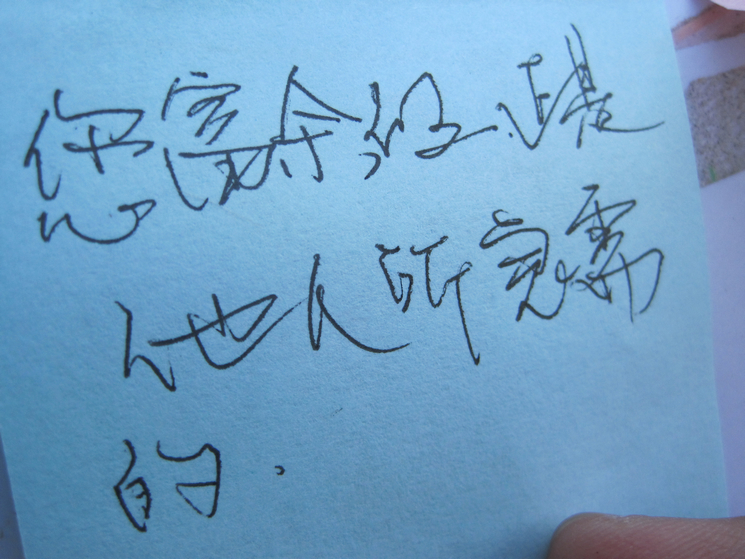 您富余没正是
他人所急需
的.